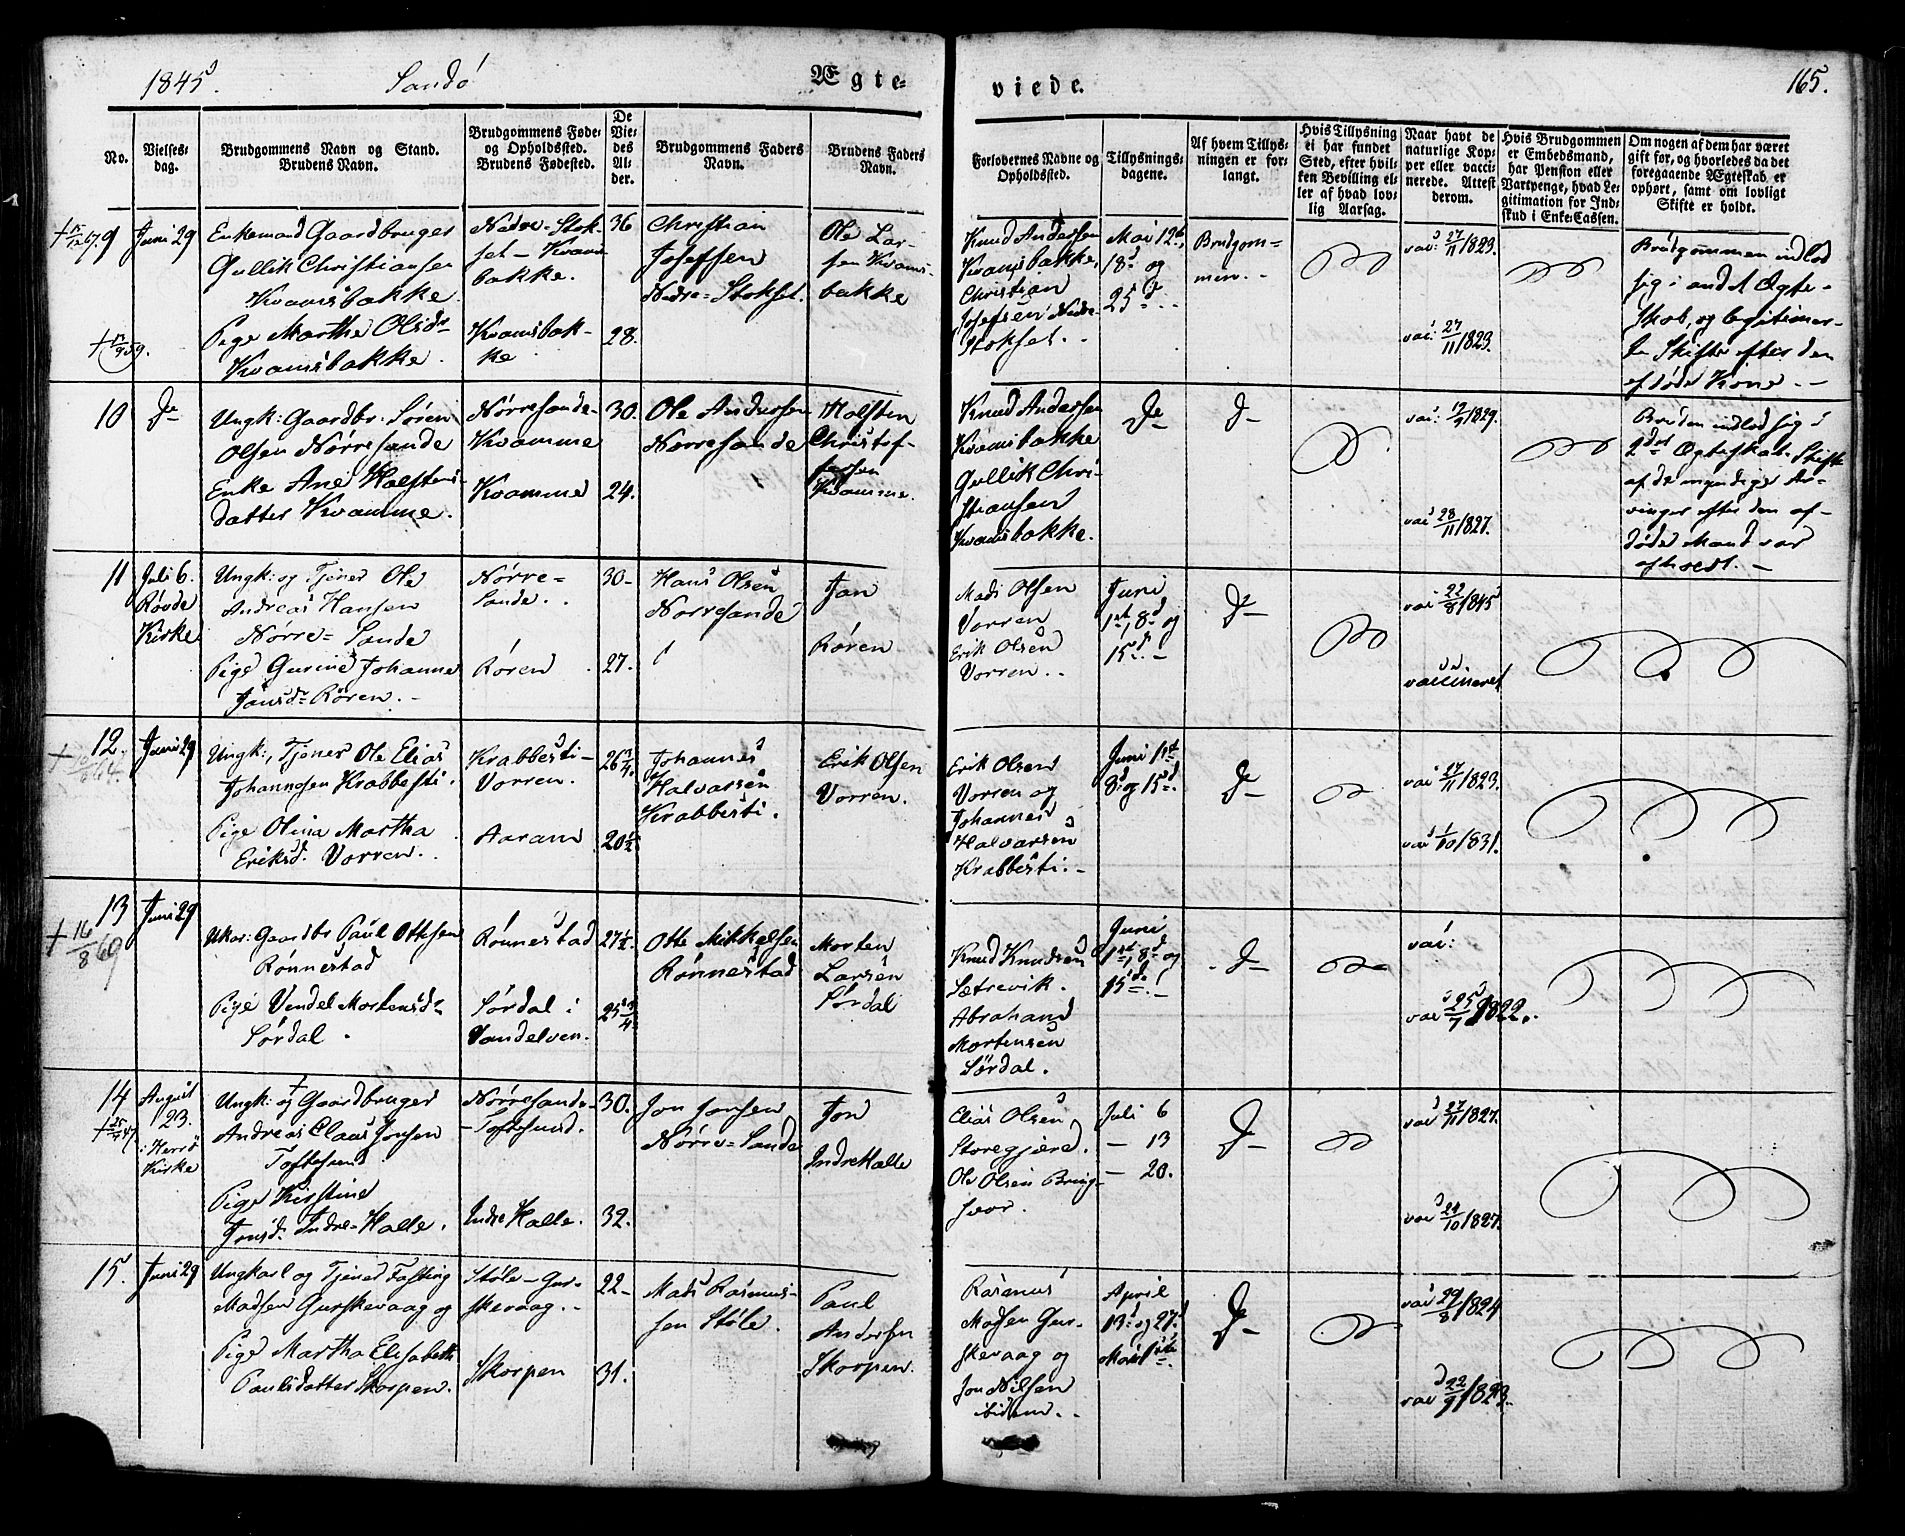 1845.
Sandö
Ægte-
viede.
165.
No.
Vielses-
dag.
Brudgommens Navn og Stand.
Brudens Navn.
Brudgommens Føde-
og Opholdssted.
Brudens Fødested.
De
Vie-
des
Al-
der.
Brudgommens Faders
Navn.
Brudens Faders
Navn.
Forlovernes Navne og
Opholdssted.
Tillysnings-
dagene.
Af hvem Tillys-
ningen er for-
langt.
Hvis Tillysning
ei har fundet
Sted, efter hvil-
ken Bevilling el-
ler af hvad lov-
lig Aarsag.
Naar havt de
naturlige Kop-
per eller vacci-
nerede. Attest
derom.
Hvis Brudgommen
er Embedsmand,
har Pension eller
Vartpenge, hvad Le-
gitimation for Ind-
skud i Enke-Cassen.
Om nogen af dem har været
gift før, og hvorledes da det
foregaaende Ægteskab er
ophørt, samt om lovligt
Skifte er holdt.
9
Juni 29
Enkemand Gaardbruger
Gullik Christiansen
Kvamsbakke.
Pige Marthe Olsdr
Kvamsbakke.
Nedre-Stok-
set - Kvams
bakke.
Kvamsbak-
ke
36
28.
Christian
Josefsen
Nedre-Stokset.
Ole Lar-
sen Kvams-
bakke
Knud Andersen
Kvamsbakke,
Christian
Josefsen Nedre-
Stokset.
Mai 12te,
18d og
25d
Brudgom-
men.
vac: 27/11 1823.
vac: 27/11 1823.
Brudgommen indlod
sig i andet Ægte-
skab, og legitimer-
te Skifte efter den
afdøde Kone.
10
Do
Ungk: Gaardbr. Søren
Olsen Nørresande
Enke Ane Halstens-
datter Kvamme.
Nørresande-
Kvamme
Kvamme
30.
24.
Ole Andersen
Nørresande
Halsten
Christof-
fersen
Kvamme.
Knud Andersen
Kvamsbakke
Gullik Chri-
stiansen
Kvamsbakke.
Do
Do
vac: 19/9 1829.
vac 28/11 1827.
Bruden indlod sig i
2det Ægteskab. Skifte
af de myndige Ar-
vinger efter den af-
døde Mand var
afholdt.
11
Juli 6.
Røvde
Kirke
Ungk: og Tjener Ole
Andreas Hansen
Nørre-Sande
Pige Gurine Johanne
Jonsdr Røren.
Nørre-
Sande.
Røren
30-
27.
Hans Olsen
Nørresande
Jon
Røren
Mads Olsen
Vorren
Erik Olsen
Vorren.
Juni
1st, 8d og
15d.
Do
vac 22/8 1845
vaccineret
12.
Juni 29
Ungk:, Tjener Ole Elias
Johannesen Krabbesti.
Pige Olina Martha
Eriksd. Vorren.
Krabbesti-
Vorren.
Aaram
26 3/4.
20 1/2
Johannes
Halvarsen
Krabbesti.
Erik Olsen
Vorren.
Erik Olsen
Vorren og
Johannes
Halvarsen
Krabbesti.
Juni 1st
8d og 15d.
Do
vac 27/11 1823.
vac 1/10 1831.
13
16/8 69
Juni 29
Ukar: Gaardbr Paul Ottesen
Rønnestad
Pige Vendel Mortensdr
Sørdal.
Rønnestad
Sørdal i
Vandelven.
27 1/2.
25 3/4
Otte Mikkelsen
Rønnestad
Morten
Larsen
Sørdal
Knud Knudsen
Sætrevik.
Abraham
Mortensen
Sørdal.
Juni
1st, 8d og
15d.
Do
vac:
vac 25/7 1822.
14
August
23.
i Herrö
Kirke
Ungk: og Gaardbruger
Andreas Claus Jonsen
Toftesund
Pige Kirstine
Jonsdr Indre-Halle.
Nørresande-
-Toftesund.
Indre Halle.
30.
32.
Jon Jonsen
Nørre-Sande
Jon
Indre Halle
Elias Olsen
Storegjære.
Ole Olsen Bring-
svor.
Juli 6
- 13
- 20.
Do
vac 27/11 1827.
vac 24/10 1827.
15.
Juni 29
Ungkarl og Tjener Fasting
Madsen Gurskevaag og
Pige Martha Elisabeth
Paulsdatter Skorpen.
Støle - Gur-
skevaag.
Skorpen
22-
31.
Mads Rasmus-
sen Støle.
Paul
Andersen
Skorpen.
Rasmus
Madsen Gur-
skevaag og
Jon Nilsen
ibidem.
April
13d og 27d
Mai
Do
vac 29/8 1824
vac 22/9 1823.